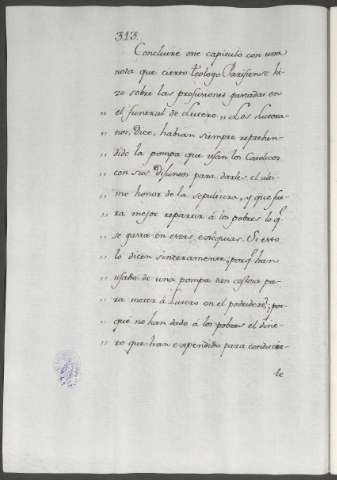 313.
Concluire este capitulo con una
nota que cierto Teologo Parisiense hi-
zo sobre las profusiones gastadas en
el funeral de Lutero. „ Los Lutera-
„ nos, dice, habian siempre reprehen-
„ dido la pompa que usan los Catolicos
„ con sus Difuntos para darles el ulti-
„ mo honor de la sepultura, y que fue-
„ ra mejor repartir á los pobres lo q.e
„ se gasta en estas exêquias. Si esto
„ lo dicen sinceramente; porq.e han
„ usado de una pompa tan costosa pa-
„ ra meter á Lutero en el podridero?; por-
„ qué no han dado á los pobres el dine-
„ ro que han expendido para conducir-
le